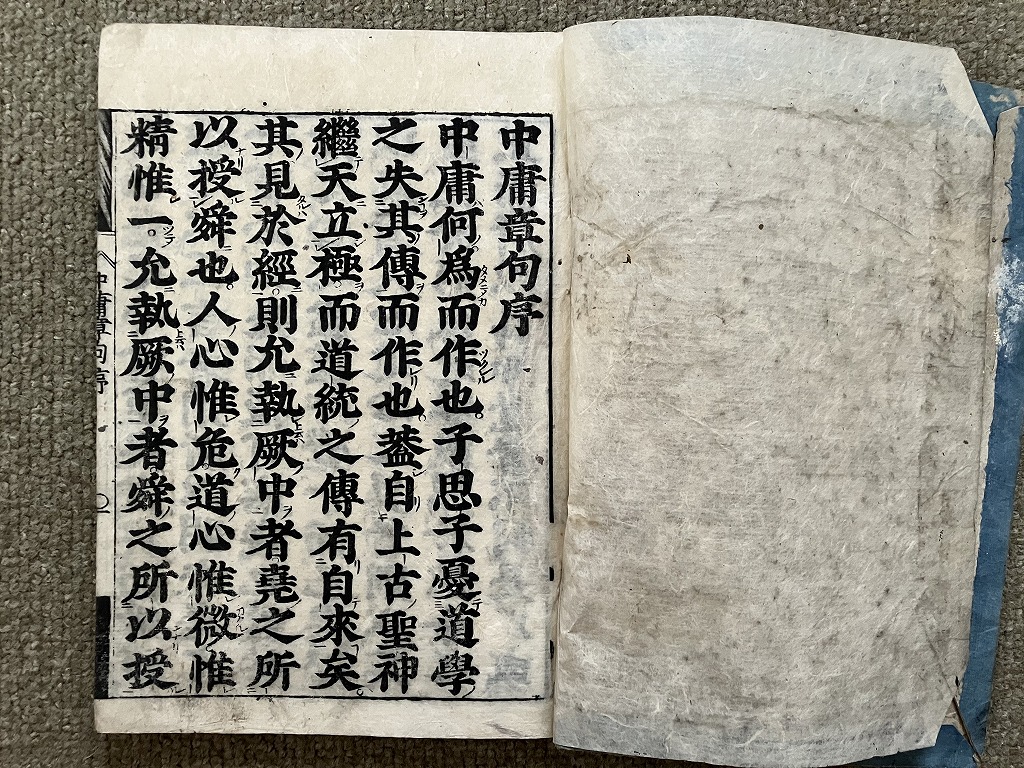 中庸章句序
中庸何爲而作也。子思子憂道學
之失其傳而作也。葢自上古聖神
繼天立極。而道統之傳有自來矣。
其見於經。則允執厥中者。堯之所
以授舜也。人心惟危。道心惟微。惟
精惟一。允執厥中者。舜之所以授
中庸章句序 〇一